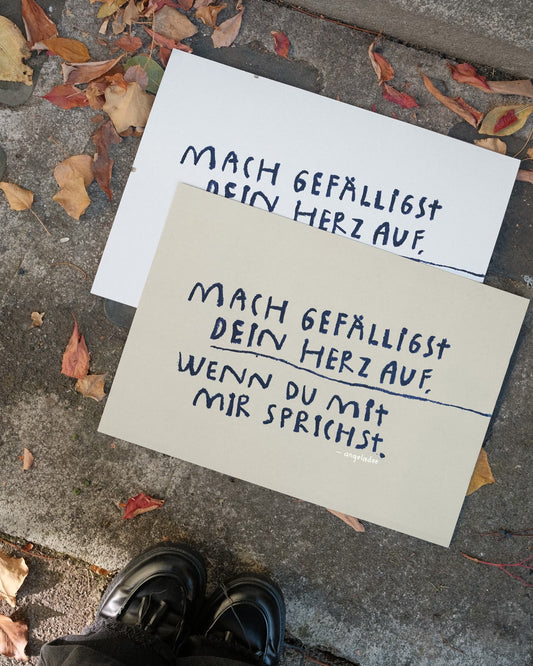 MACH GEFÄLLIGST
DEIN HERZ AUF,
MACH GEFÄLLIGST
DEIN HERZ AUF,
WENN DU MIT
MIR SPRICHST.
– angeladoe